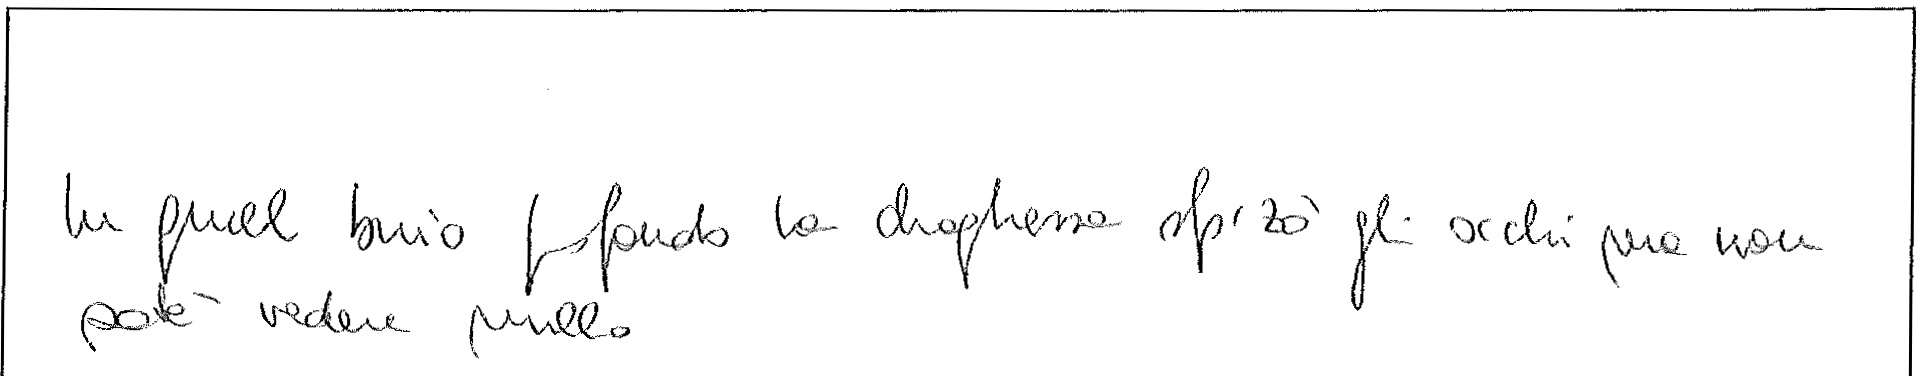 In quel buio profondo la draghessa sfrizò gli occhi ma non
potè vedere nulla